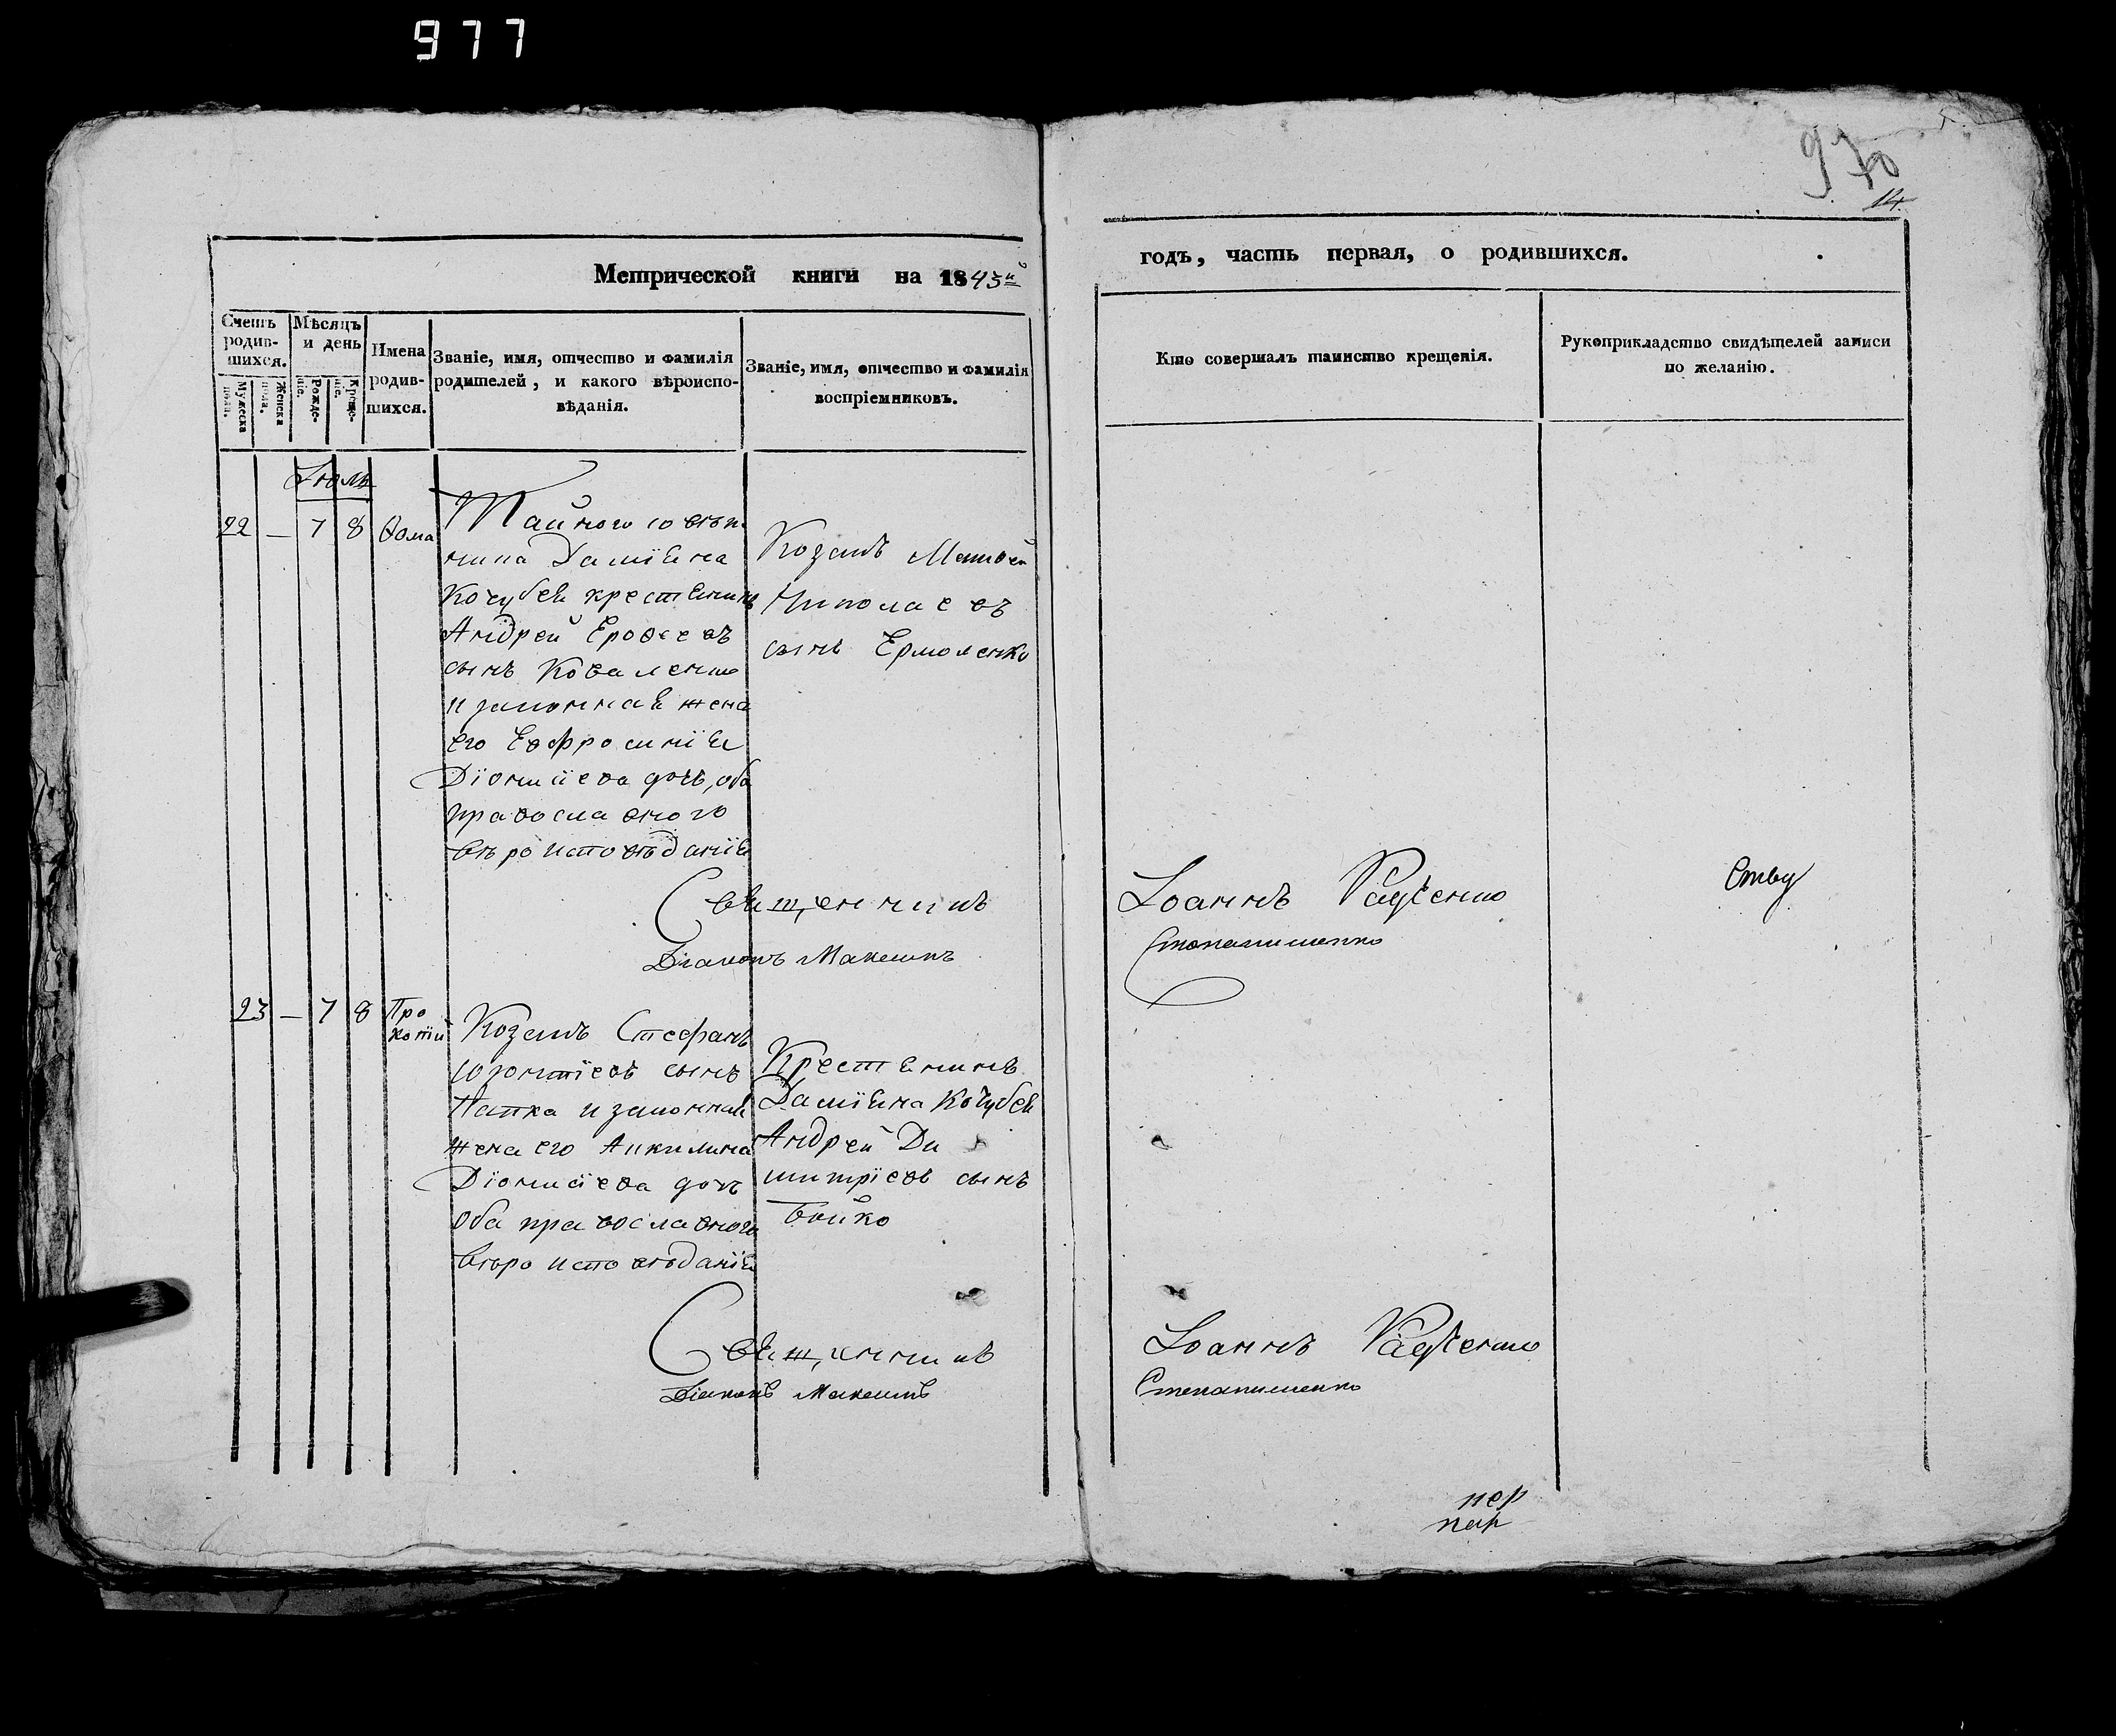 977
970
14
Метрической книги на 1843й
годъ, часть первая, о родившихся.
Счетъ родив-шихся.
Мужеска пола.
Женска пола.
Мѣсяцъ и день
Рожде-ніе.
Креще-ніе.
Имена родив-шихся.
Званіе, имя, отчество и фамилія
родителей, и какого вѣроиспо-
вѣданія.
Званіе, имя, отчество и фамилія
воспріемниковъ.
Кто совершалъ таинство крещенія.
Рукоприкладство свидѣтелей записи
по желанію.
Іюль
22 — 7 8 Ѳома
Тайного совѣт
ника Даміяна
Кочубея крестянинъ
Андрей Ероѳеевъ
сынъ Коваленко
и законная жена
его Евфросинія
Діонисіева дочь, оба
православного
вѣроисповѣданія
Козакъ Матвей
Николаевъ
сынъ Ермоленко
Священникъ
Іоаннъ
Діаконъ Максимъ
Степаненко
23 — 7 8 Про
копій
Козакъ Стефанъ
сынъ
и законная
жена его Акилина
Діонисіева дочь
оба православного
вѣроисповѣданія
Крестянинъ
Даміяна Кочубея
Андрей Ди
митріевъ сынъ
Бойко
Священникъ
Іоаннъ
Діаконъ Максимъ